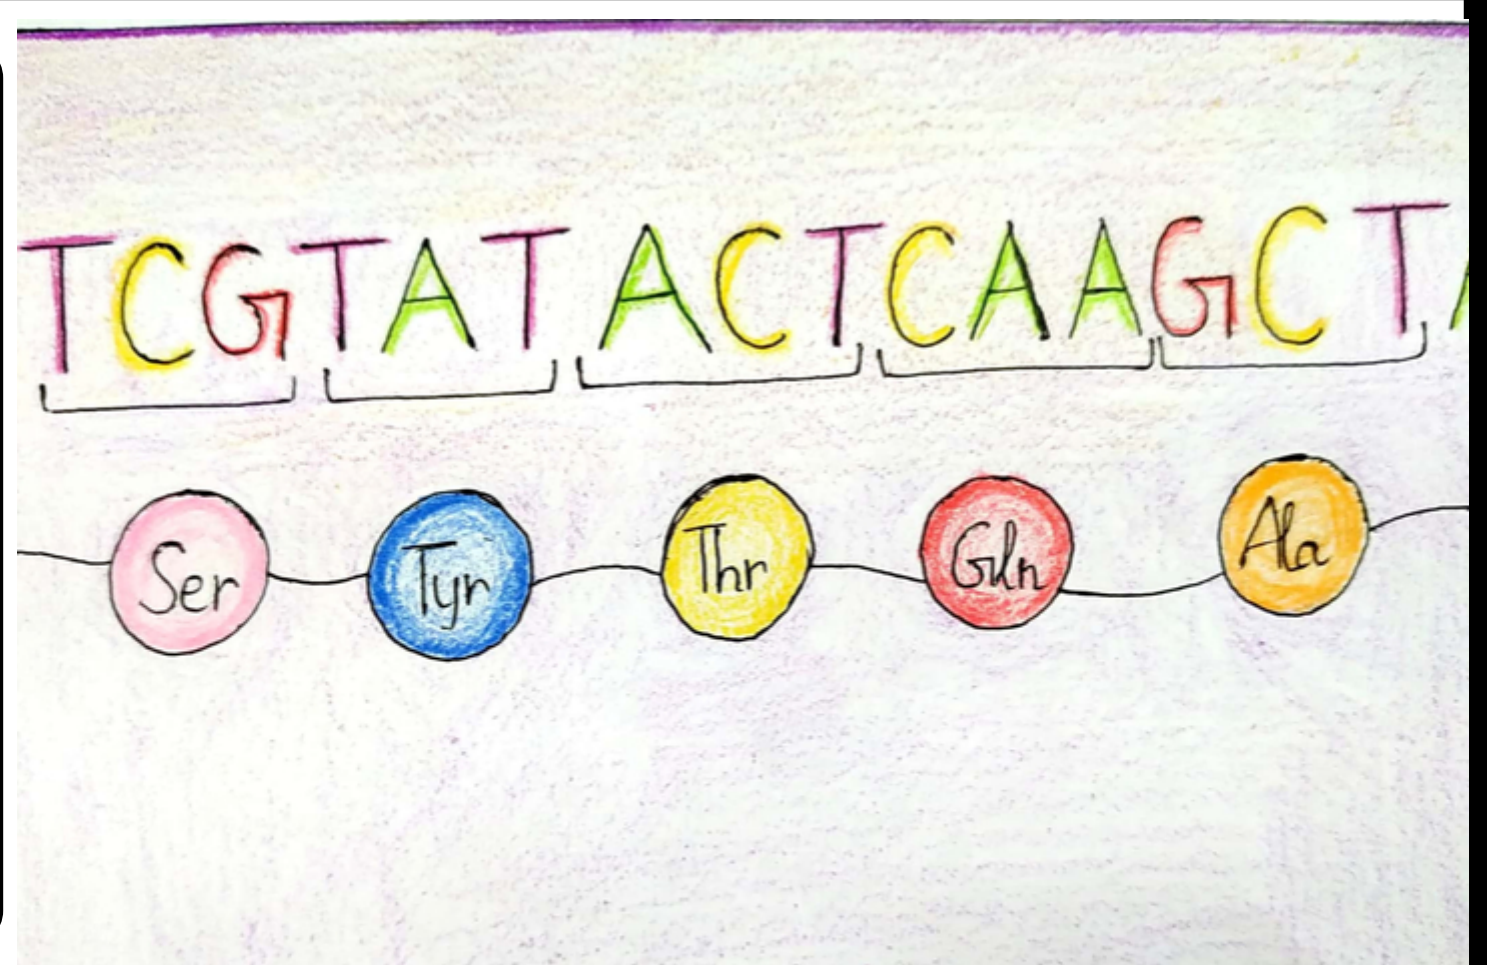 TCGTATACTCAAGCTA
Ser Tyr Thr Gln Ala